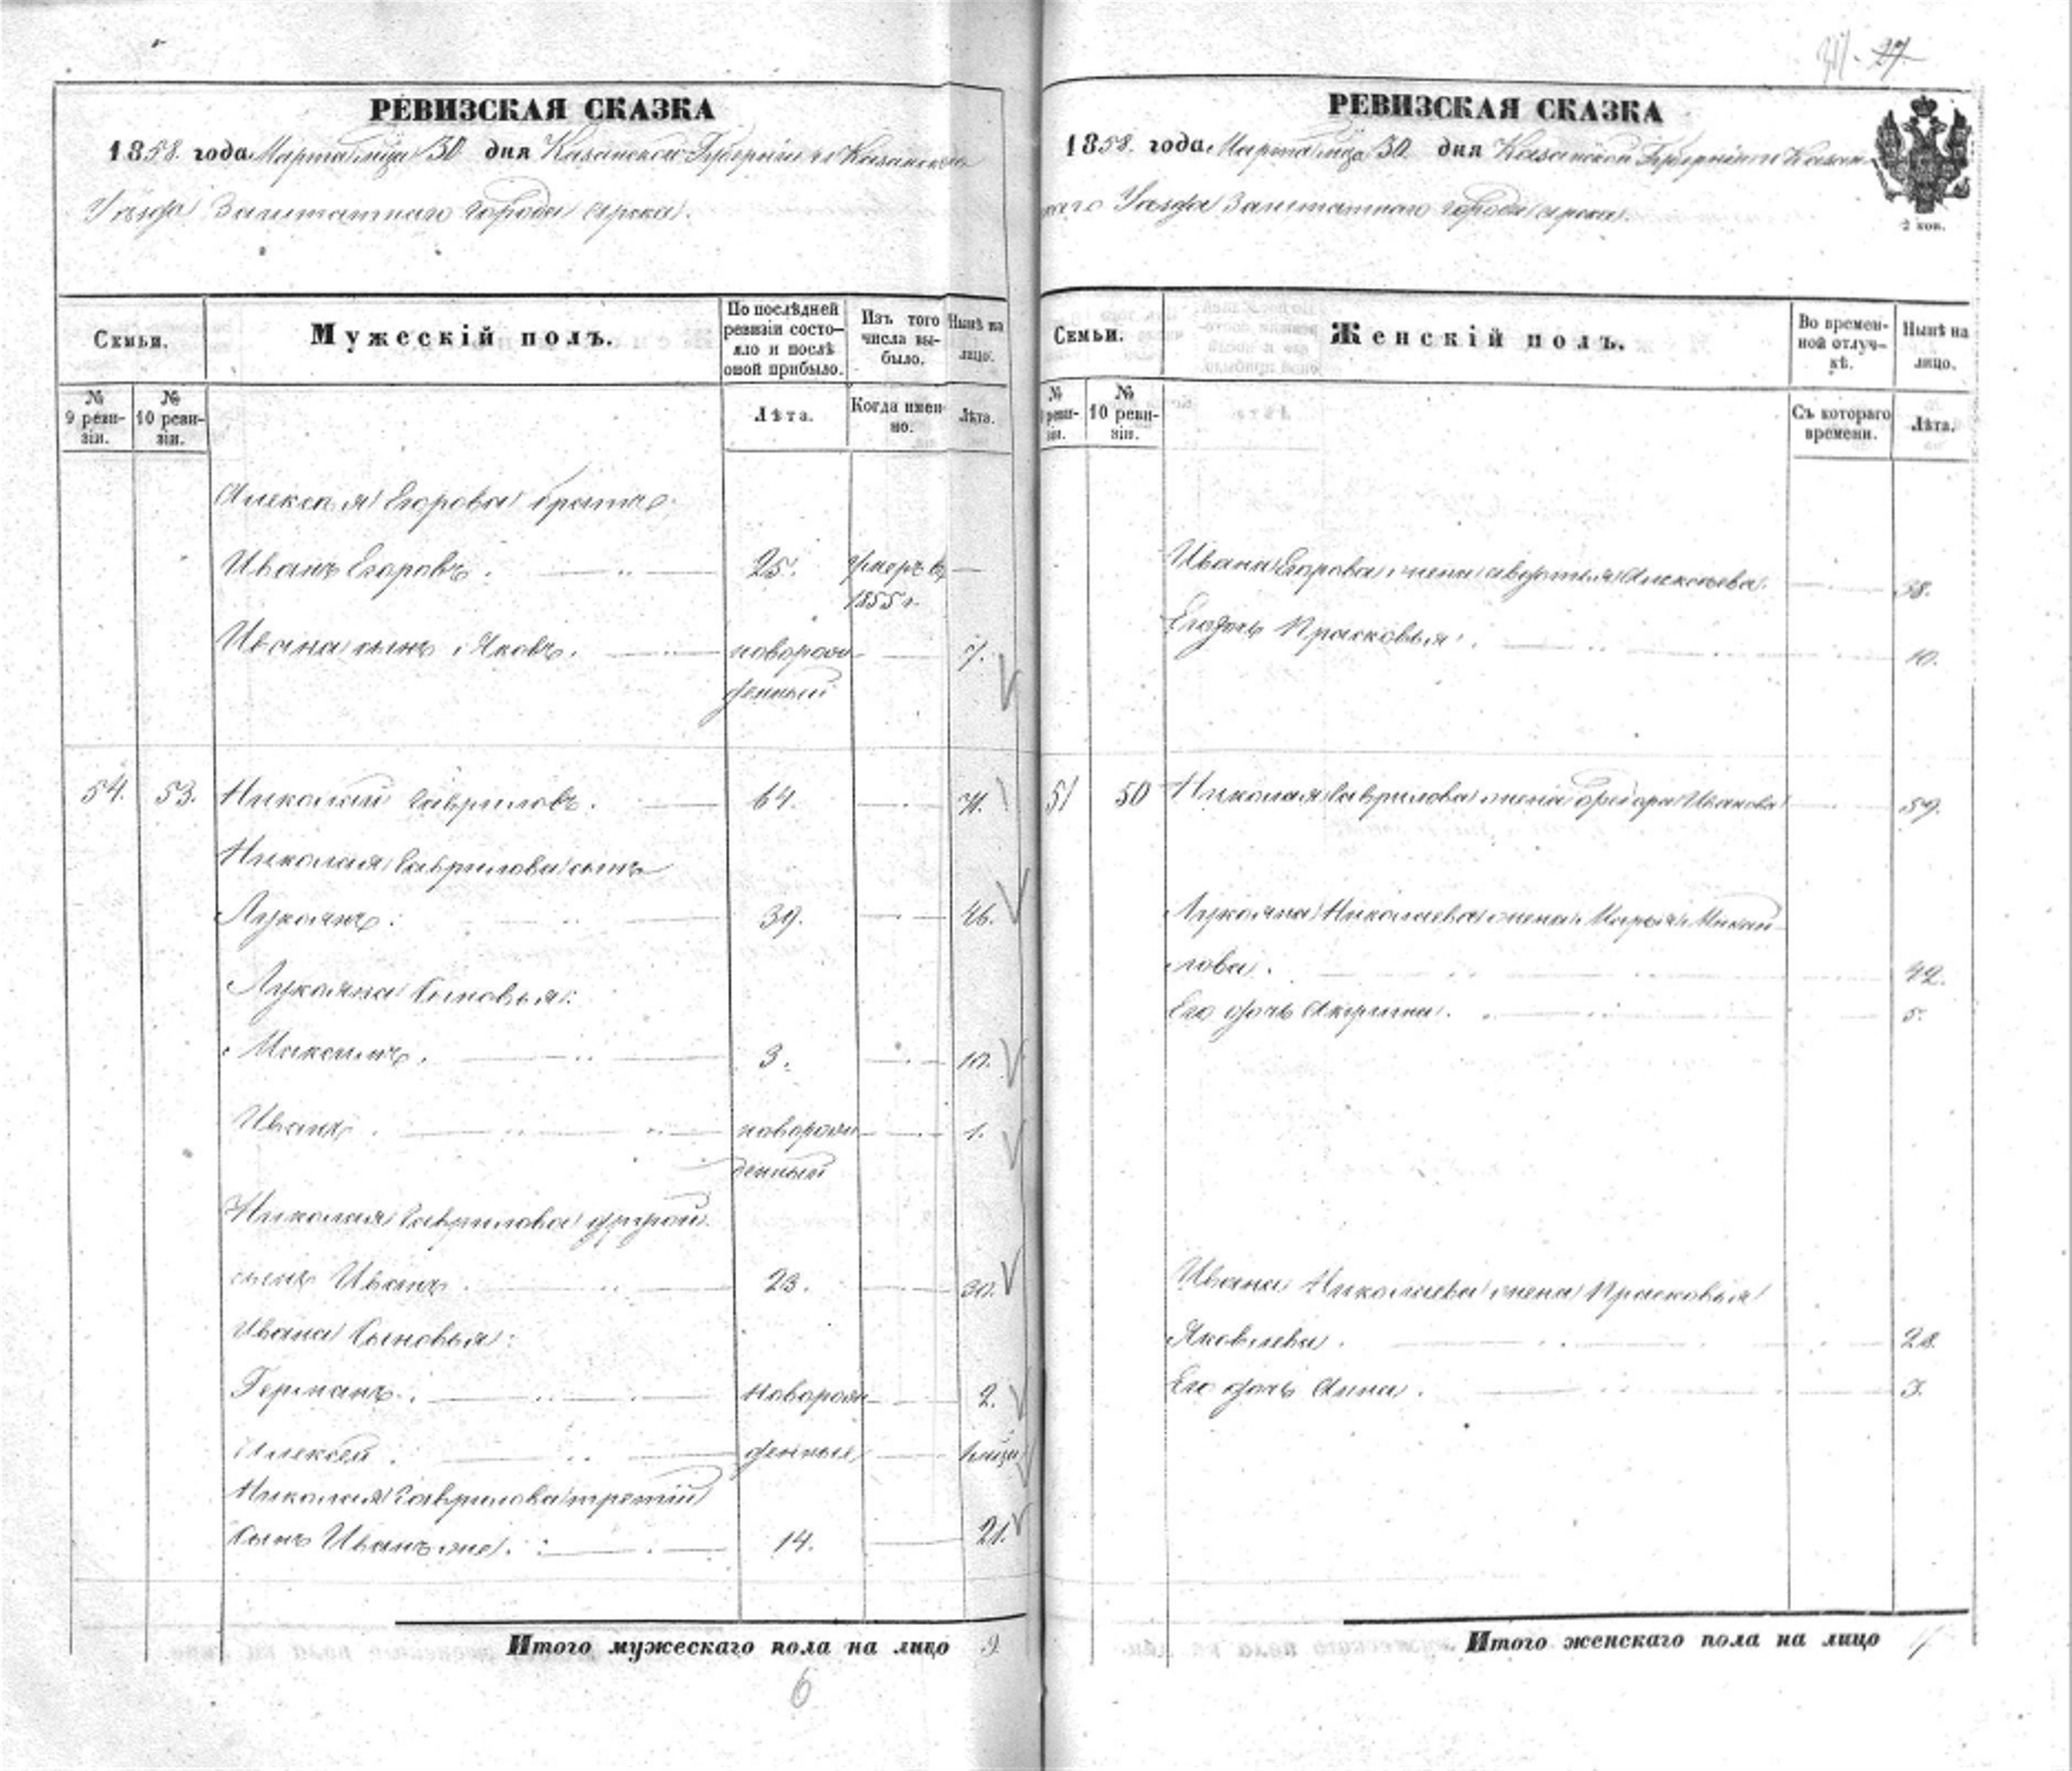 27.
РЕВИЗСКАЯ СКАЗКА
1858. года Марта м-ца 30 дня Казанской Губерніи и Казанскаго
Уѣзда Заштатнаго города Арска.
Семьи.
Мужескій полъ.
По послѣдней
ревизіи состо-
яло и послѣ
оной прибыло.
Изъ того
числа вы-
было.
Нынѣ на
лицо.
№
9 реви-
зіи.
№
10 реви-
зіи.
Лѣта.
Когда имен-
но.
Лѣта.
Алексѣя Егорова братъ
Иванъ Егоровъ. 25. умеръ въ
1855 г.
Ивана сынъ Яковъ. новорож- 7.
денный
54. 53. Николай Гавриловъ. 64. 71.
Николая Гаврилова сынъ
Лукоянъ. 39. 46.
Лукояна Сыновья:
Максимъ. 3. 10.
Иванъ. новорож- 1.
денный
Николая Гаврилова другой
сынъ Иванъ. 23. 30.
Ивана Сыновья:
Германъ. новорож- 2.
Алексѣй. денные
Николая Гаврилова третій
сынъ Иванъ же. 14. 21.
Итого мужескаго пола на лицо 9.
6
РЕВИЗСКАЯ СКАЗКА
1858. года Марта м-ца 30 дня Казанской Губерніи и Казан-
скаго Уѣзда Заштатнаго города Арска.
2 коп.
Семьи.
Женскій полъ.
Во времен-
ной отлуч-
кѣ.
Нынѣ на
лицо.
№
реви-
зіи.
№
10 реви-
зіи.
Съ котораго
времени.
Лѣта.
Ивана Егорова жена Авдотья Алексѣева. 38.
Егодочь Прасковья. 10.
51 50 Николая Гаврилова жена Ѳедора Иванова 59.
Лукояна Николаева жена Марья Михай-
лова. 42.
Его дочь Акулина. 5.
Ивана Николаева жена Прасковья
Яковлева. 28.
Его дочь Анна. 3.
Итого женскаго пола на лицо 7